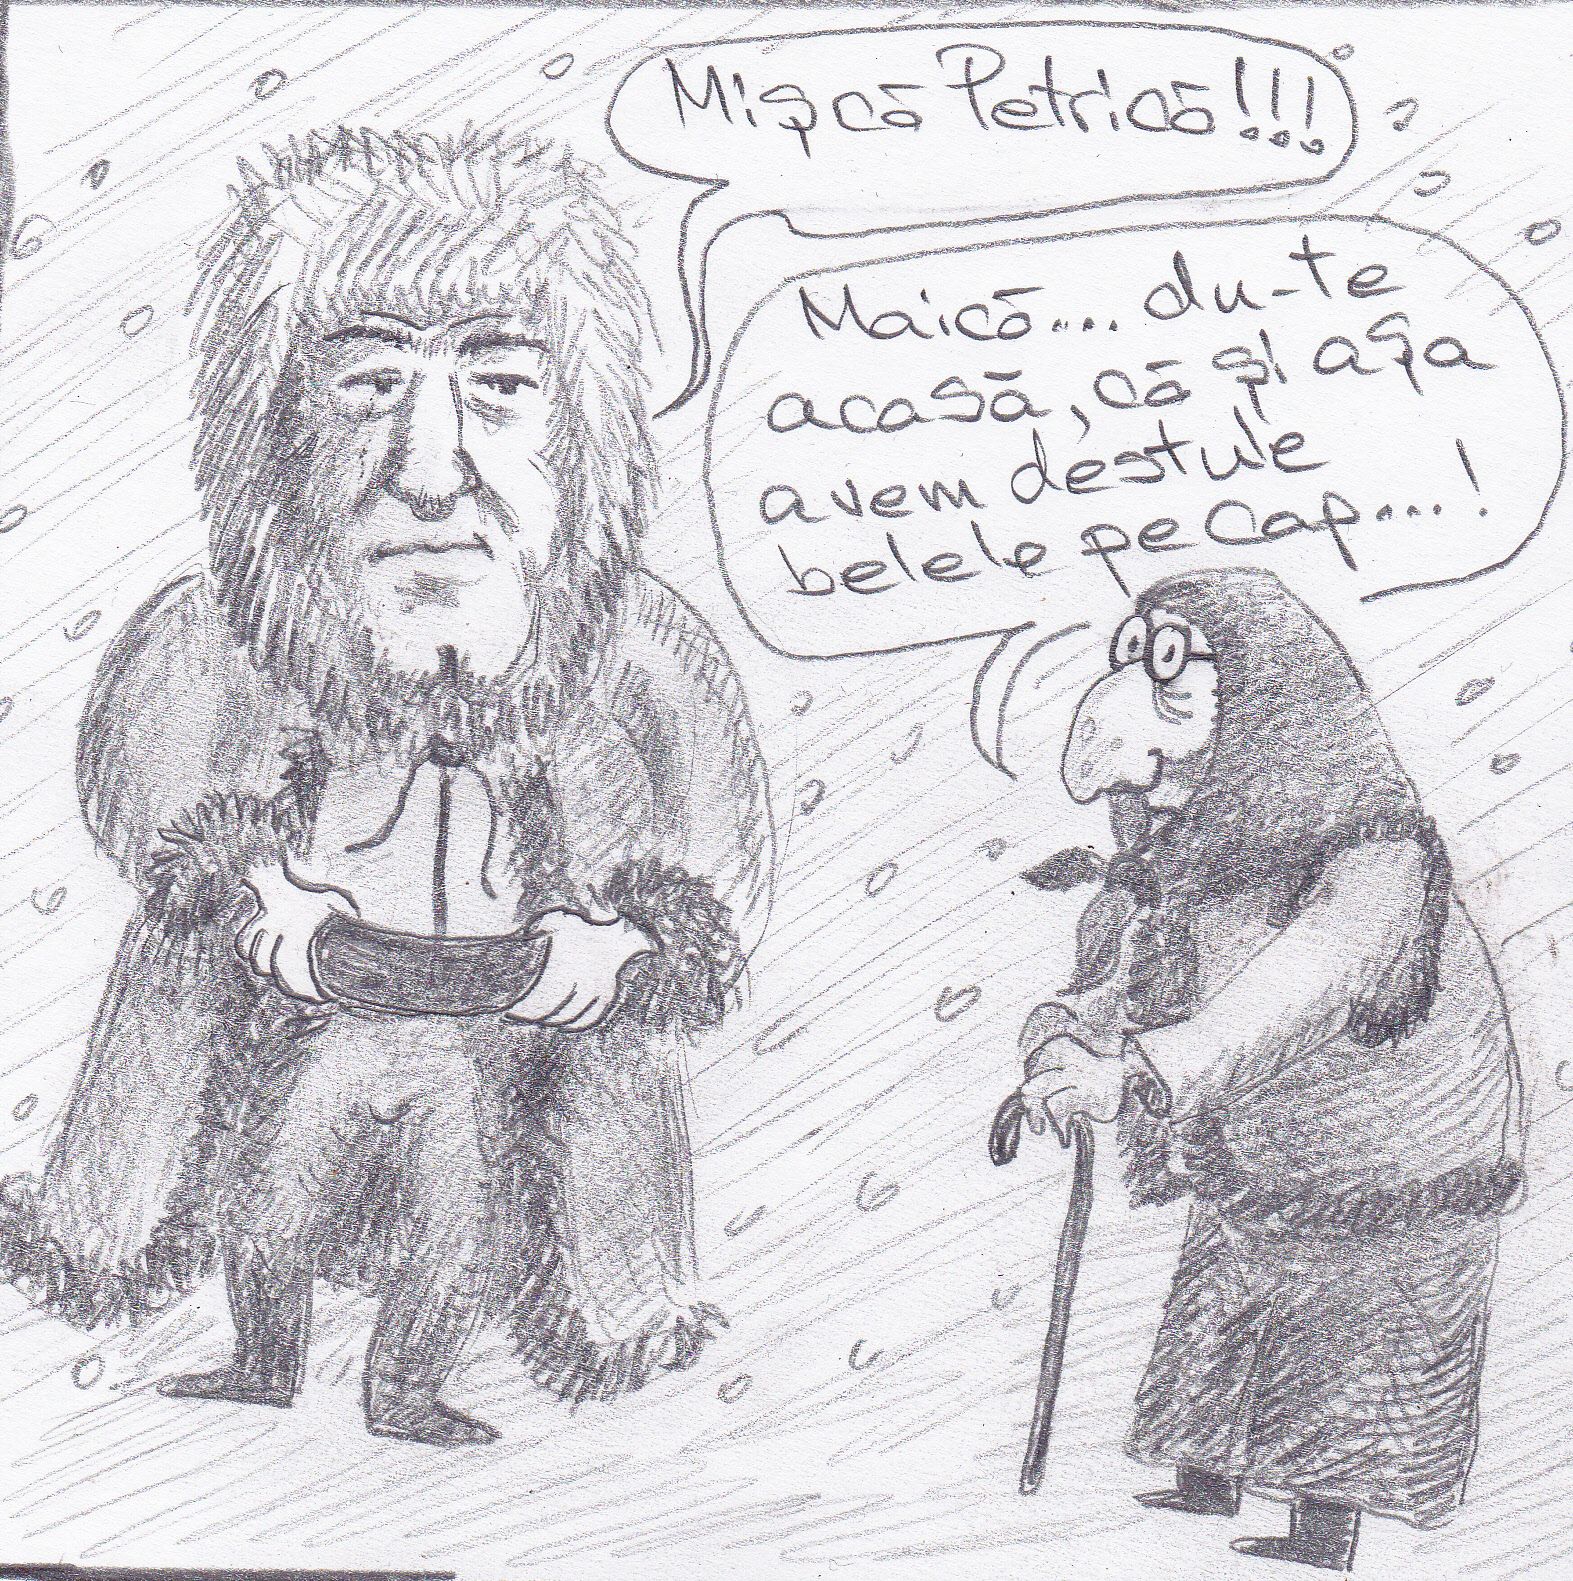 Mișcă Petrică!!!
Maică.... du-te
acasă, că și așa
avem destule
belele pe cap....!